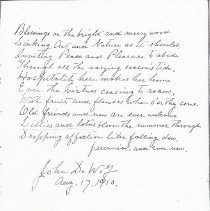 Blessings on the bright and merry wood
Linking Art and Nature as it should
Inviting Peace and Pleasure to abide
Through all the varying seasons tide,
Hospitality here makes her home
Even the birdies ceasing to roam,
With fruit and flowers when ere they come
Old friends and new are ever welcome
Lillies and lotus bloom the summer through
Dropping affection like falling dew,
perennial and ever new.
John De Wolf
Aug. 17, 1910.